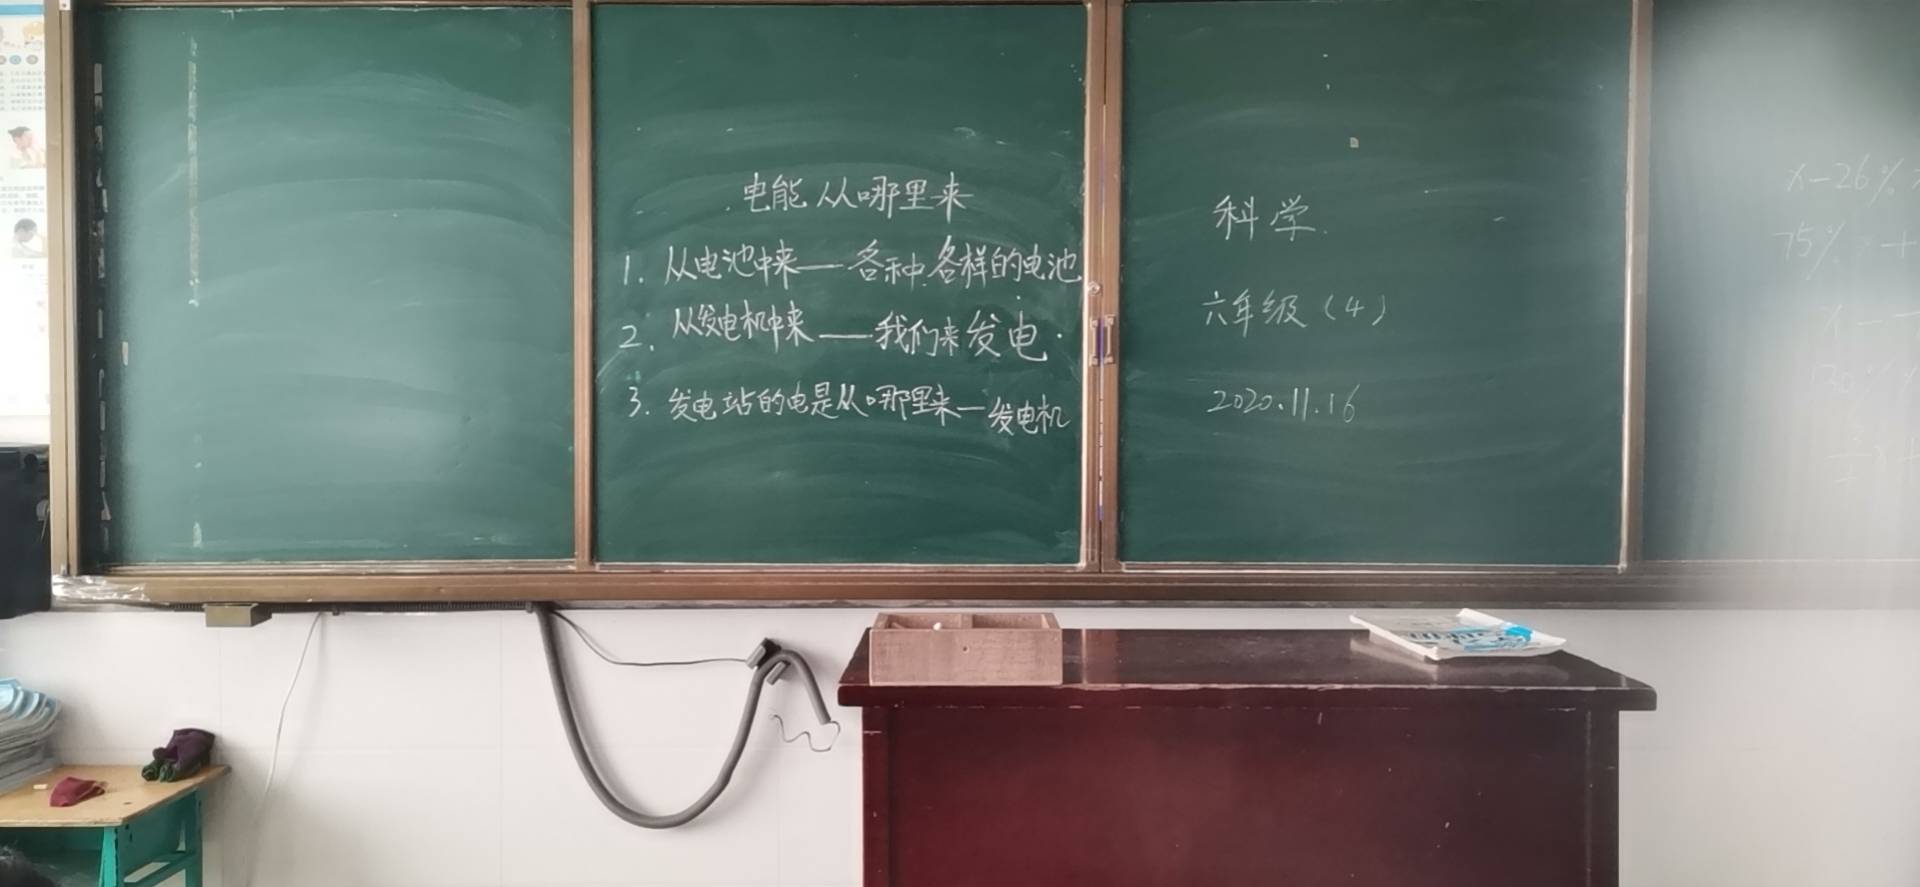 电能从哪里来
1. 从电池中来——各种各样的电池
2. 从发电机中来——我们来发电
3. 发电站的电是从哪里来—发电机
科学
六年级（4）
2020.11.16
x-26%
75% +